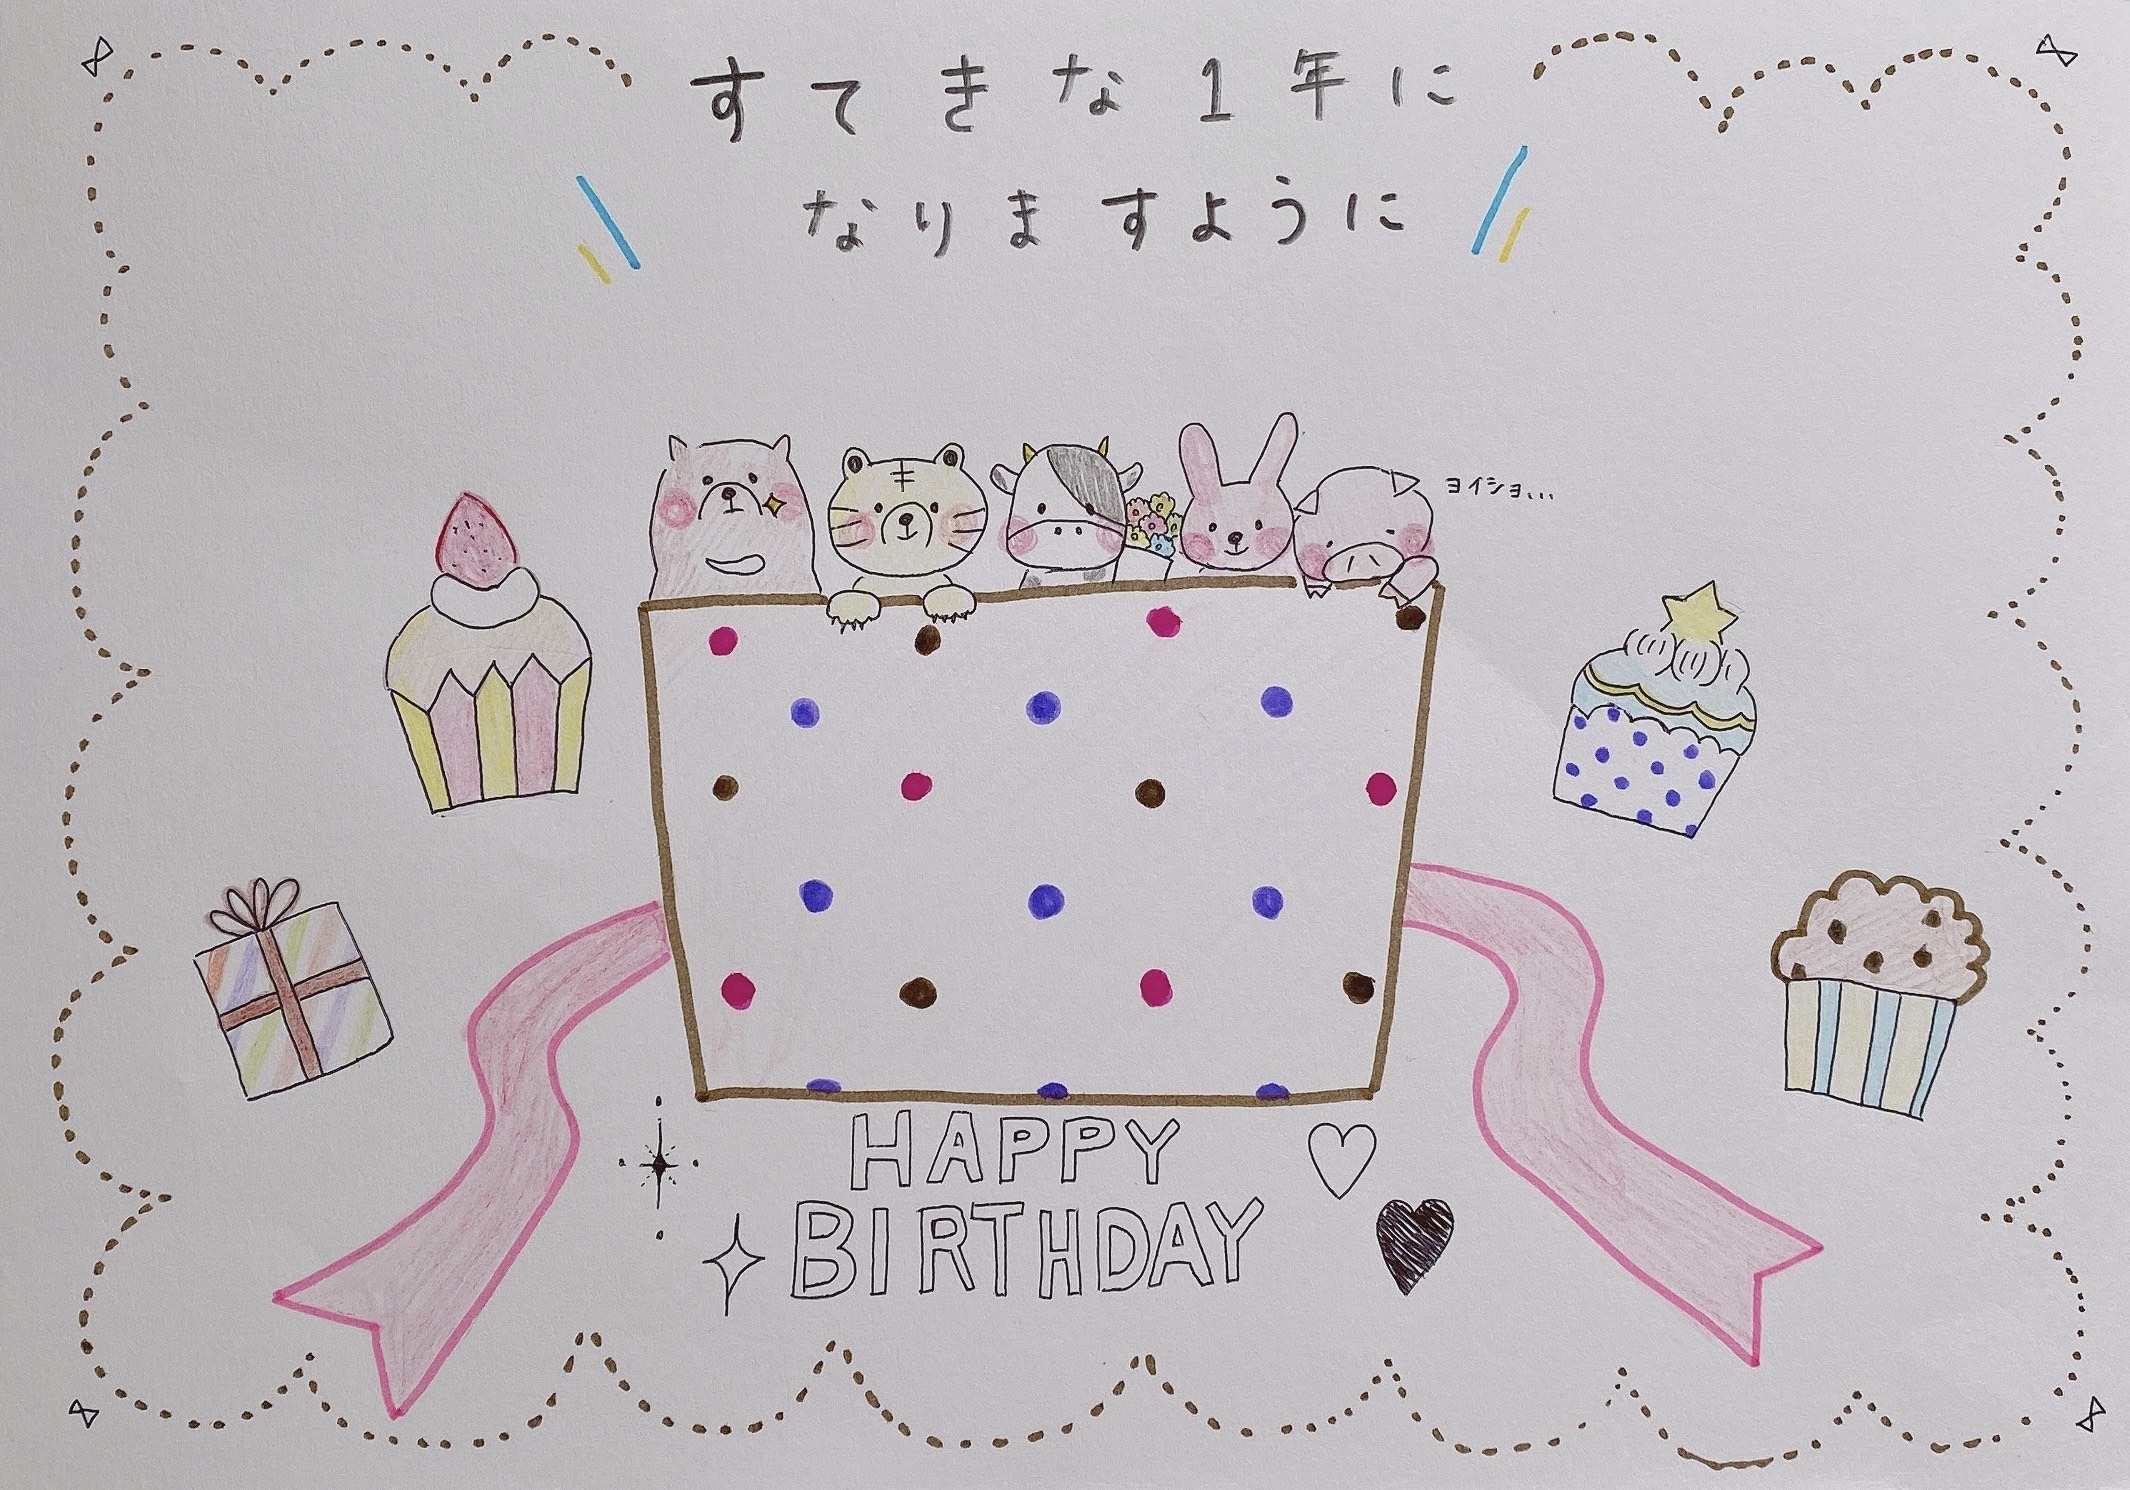 すてきな1年に
なりますように
ヨイショ...
HAPPY
BIRTHDAY